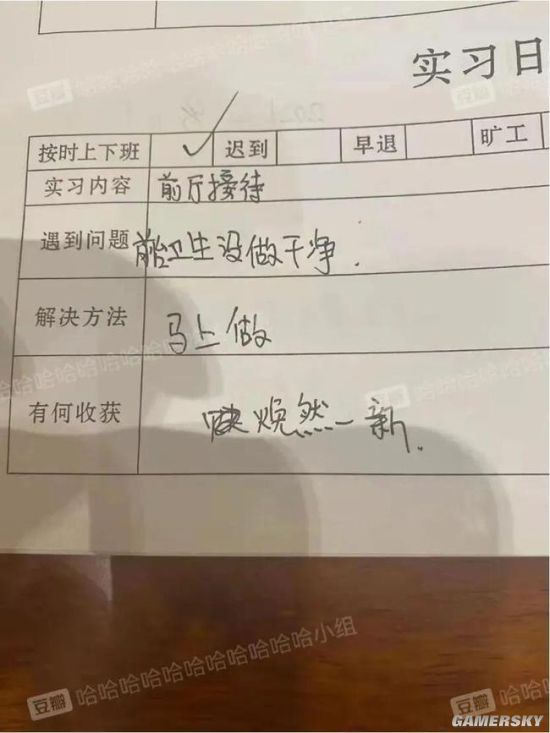 豆瓣 哈哈哈哈哈哈哈哈哈
实习日
按时上下班 ✓ 迟到 早退 旷工
实习内容 前厅接待
遇到问题 前台卫生没做干净.
解决方法 马上做
有何收获 焕然一新.
豆瓣 哈哈哈哈哈哈哈哈哈哈哈哈小组
豆瓣
GAMERSKY